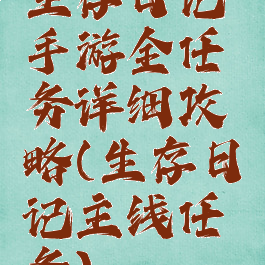 生存日记
手游全任
务详细攻
略(生存日
记主线任
务)